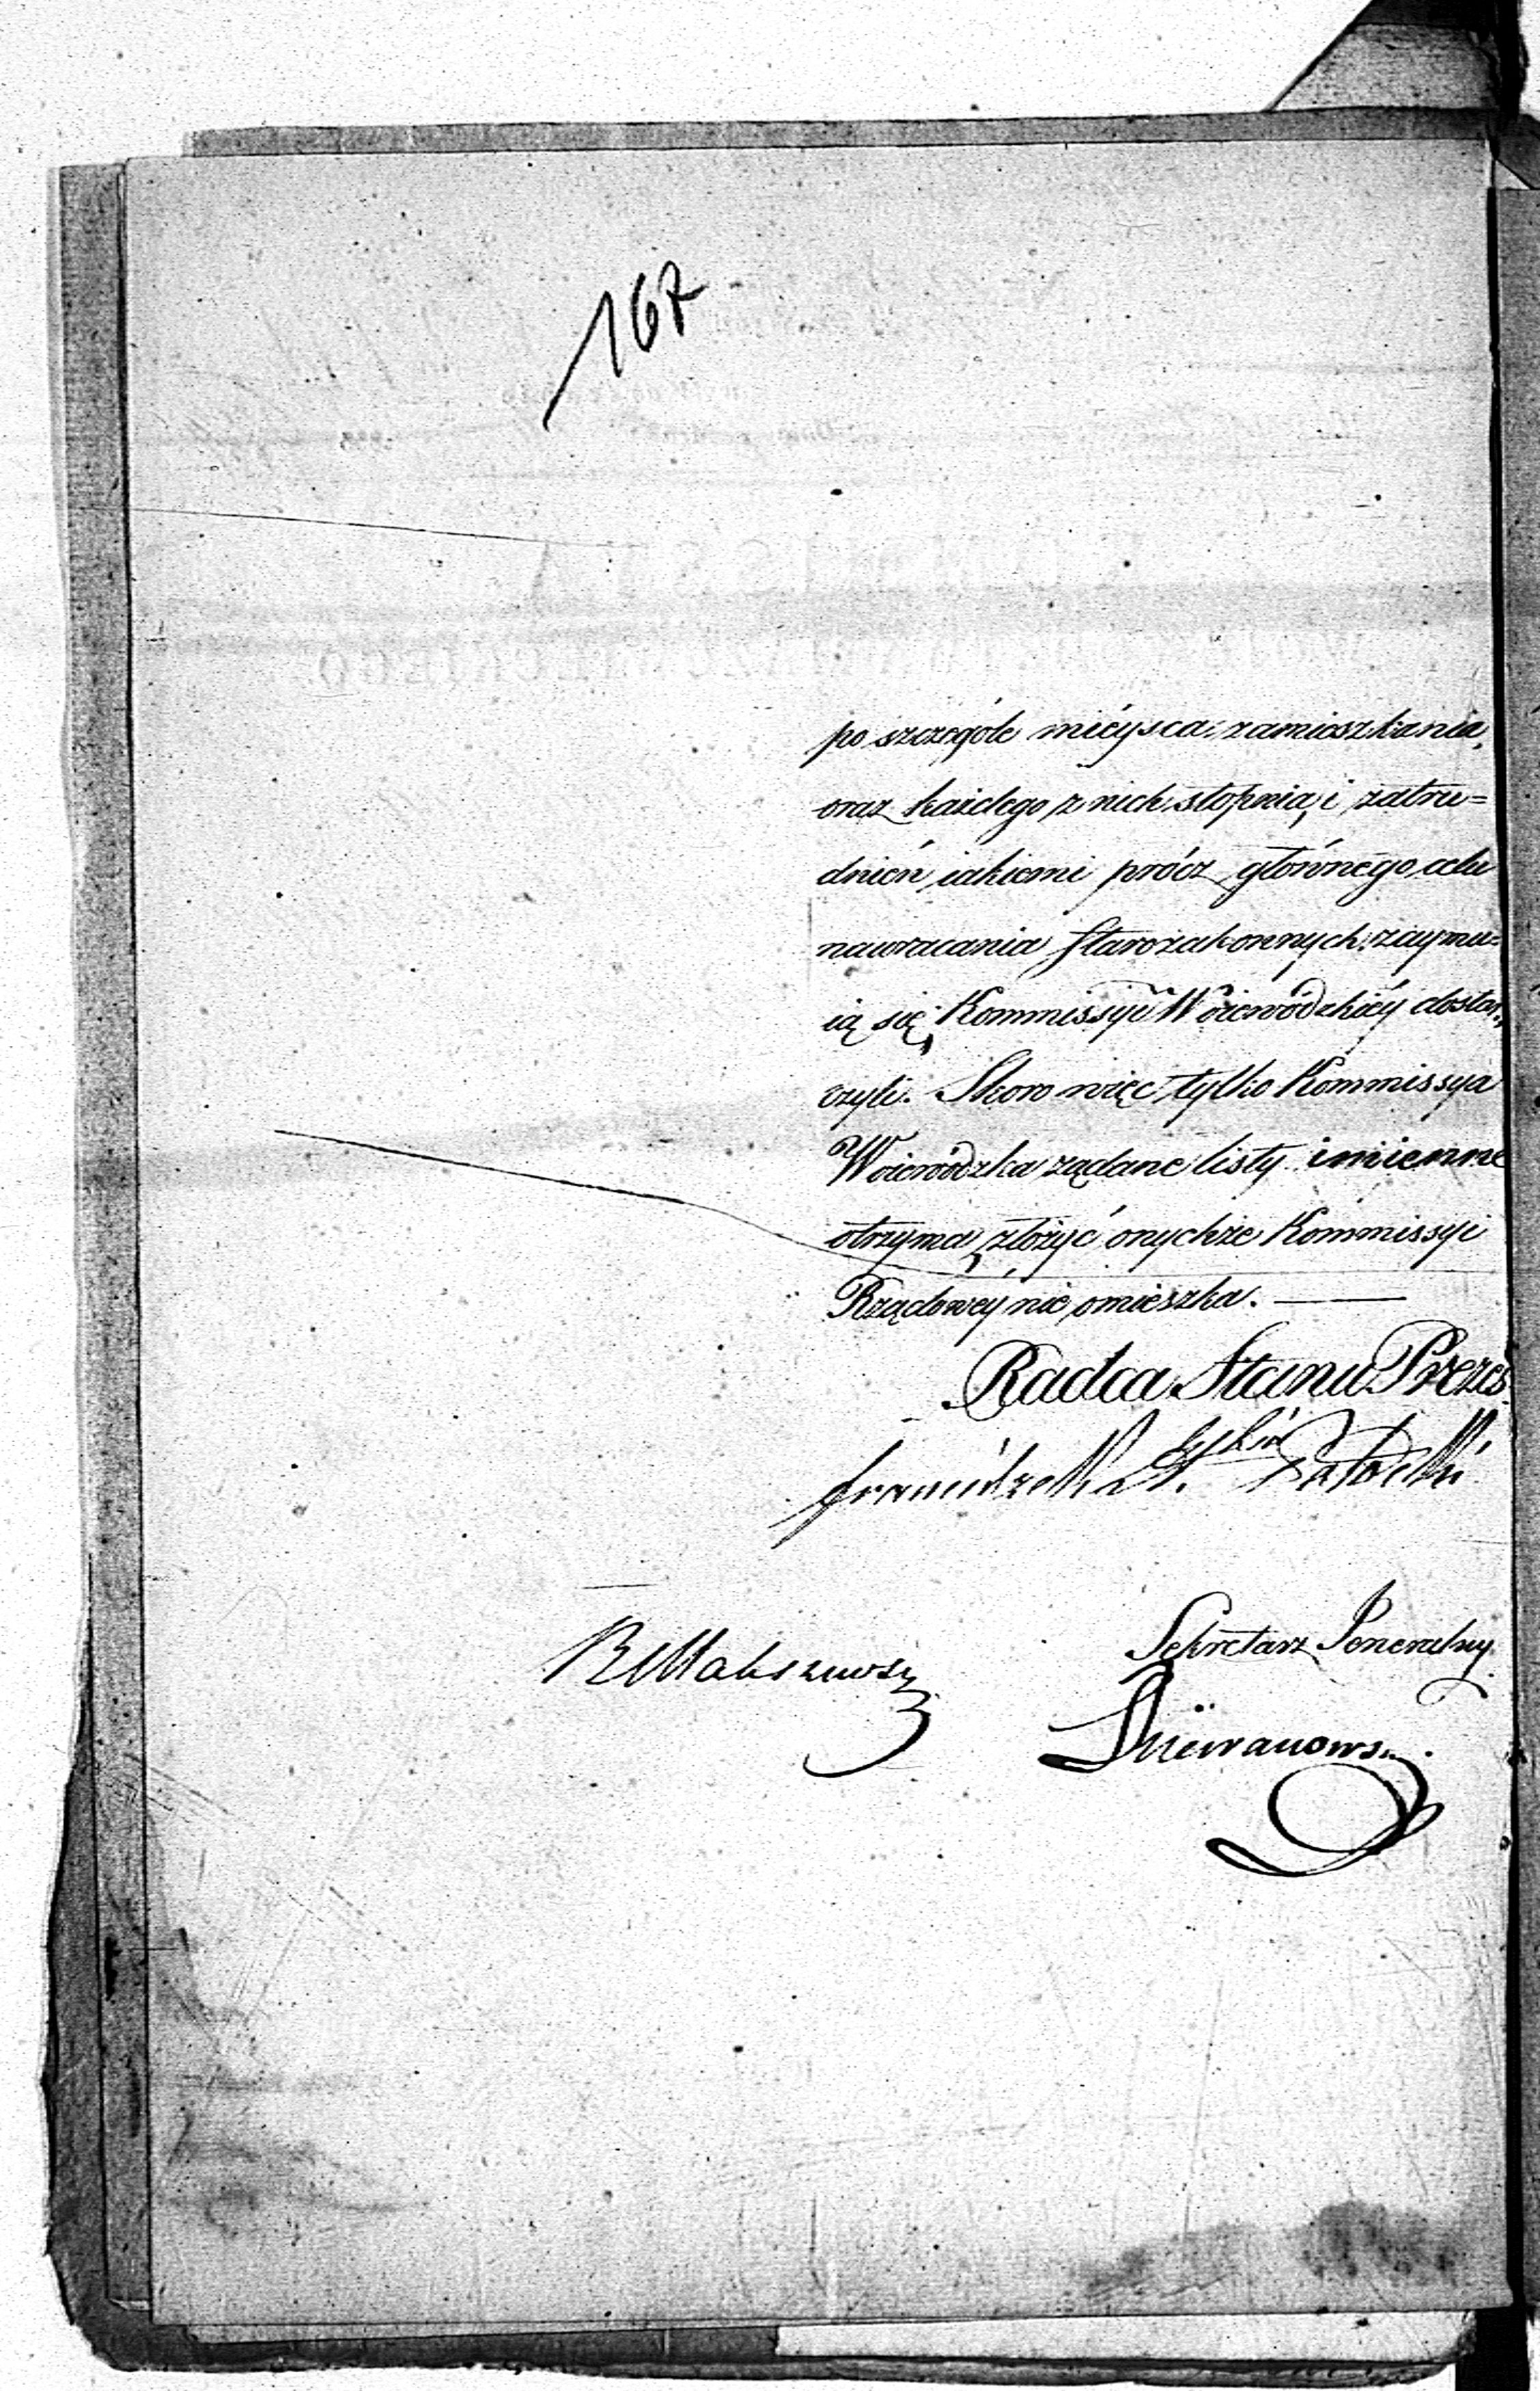 167
po szczególe mieysca zamieszkania,
oraz każdego z nich stopnia, i zatru=
dnień iakiemi prócz głównego celu
nawracania Starozakonnych zaymu=
ią się, Kommissyi Woiewódzkiéy dostar„
czyli. Skoro więc tylko Kommissya
Woiewódzka żądane listy imienne
otrzyma, złożyć onychże Kommissyi
Rządowéy nie omieszka. —
Radca Stanu Prezes
Franciszek
Potocki
Sekretarz Jeneralny